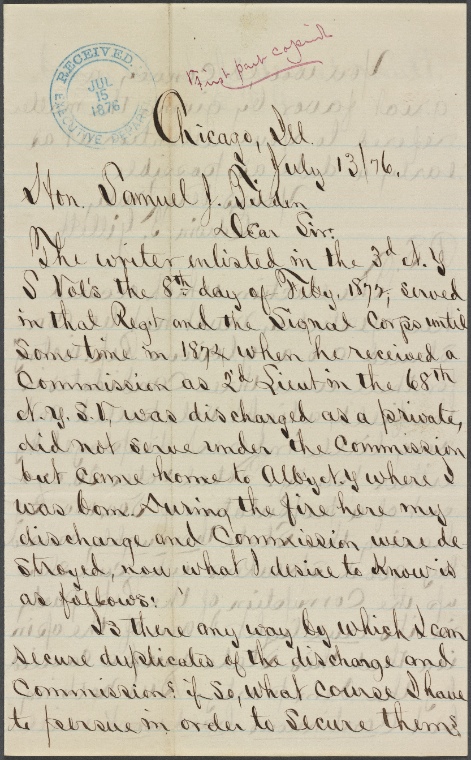 RECEIVED.
JUL
15
1876
EXECUTIVE
First part copied
Chicago, Ill.
July 13/76.
Hon. Samuel J. Tilden
Dear Sir.
The writer enlisted in the 3d N.Y
S Vol's the 8th day of Feby, 1872, served
in that Regt and the Signal Corps until
Some time in 1872 when he received a
Commission as 2d Lieut in the 68th
N.Y.S.V, was discharged as a private,
did not serve under the Commission
but came home to Alby N.Y where I
was born. During the fire here my
discharge and Commission were de
stroyed, now what I desire to know is
as follows:
Is there any way by which I can
secure duplicates of the discharge and
Commission? if so, what course I have
to persue in order to secure them?